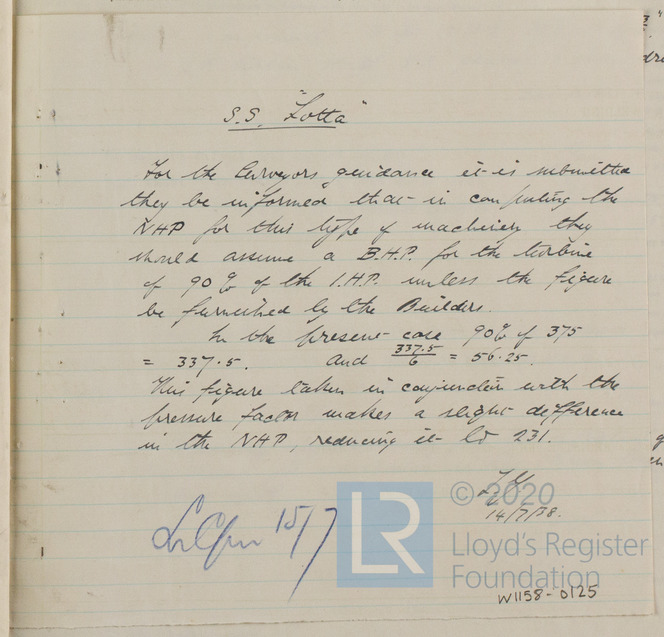 S.S. "Lotta"
For the Surveyors guidance it is submitted
they be informed that in computing the
NHP for this type of machinery they
should assume a B.H.P. for the turbine
of 90% of the I.H.P. unless the figure
be furnished by the Builders.
In the present case 90% of 375
= 337.5. and 337.5/6 = 56.25.
This figure taken in conjunction with the
pressure factor makes a slight difference
in the NHP, reducing it to 231.
15/7
14/7/38.
LR
© 2020
Lloyd's Register
Foundation
W1158-0125